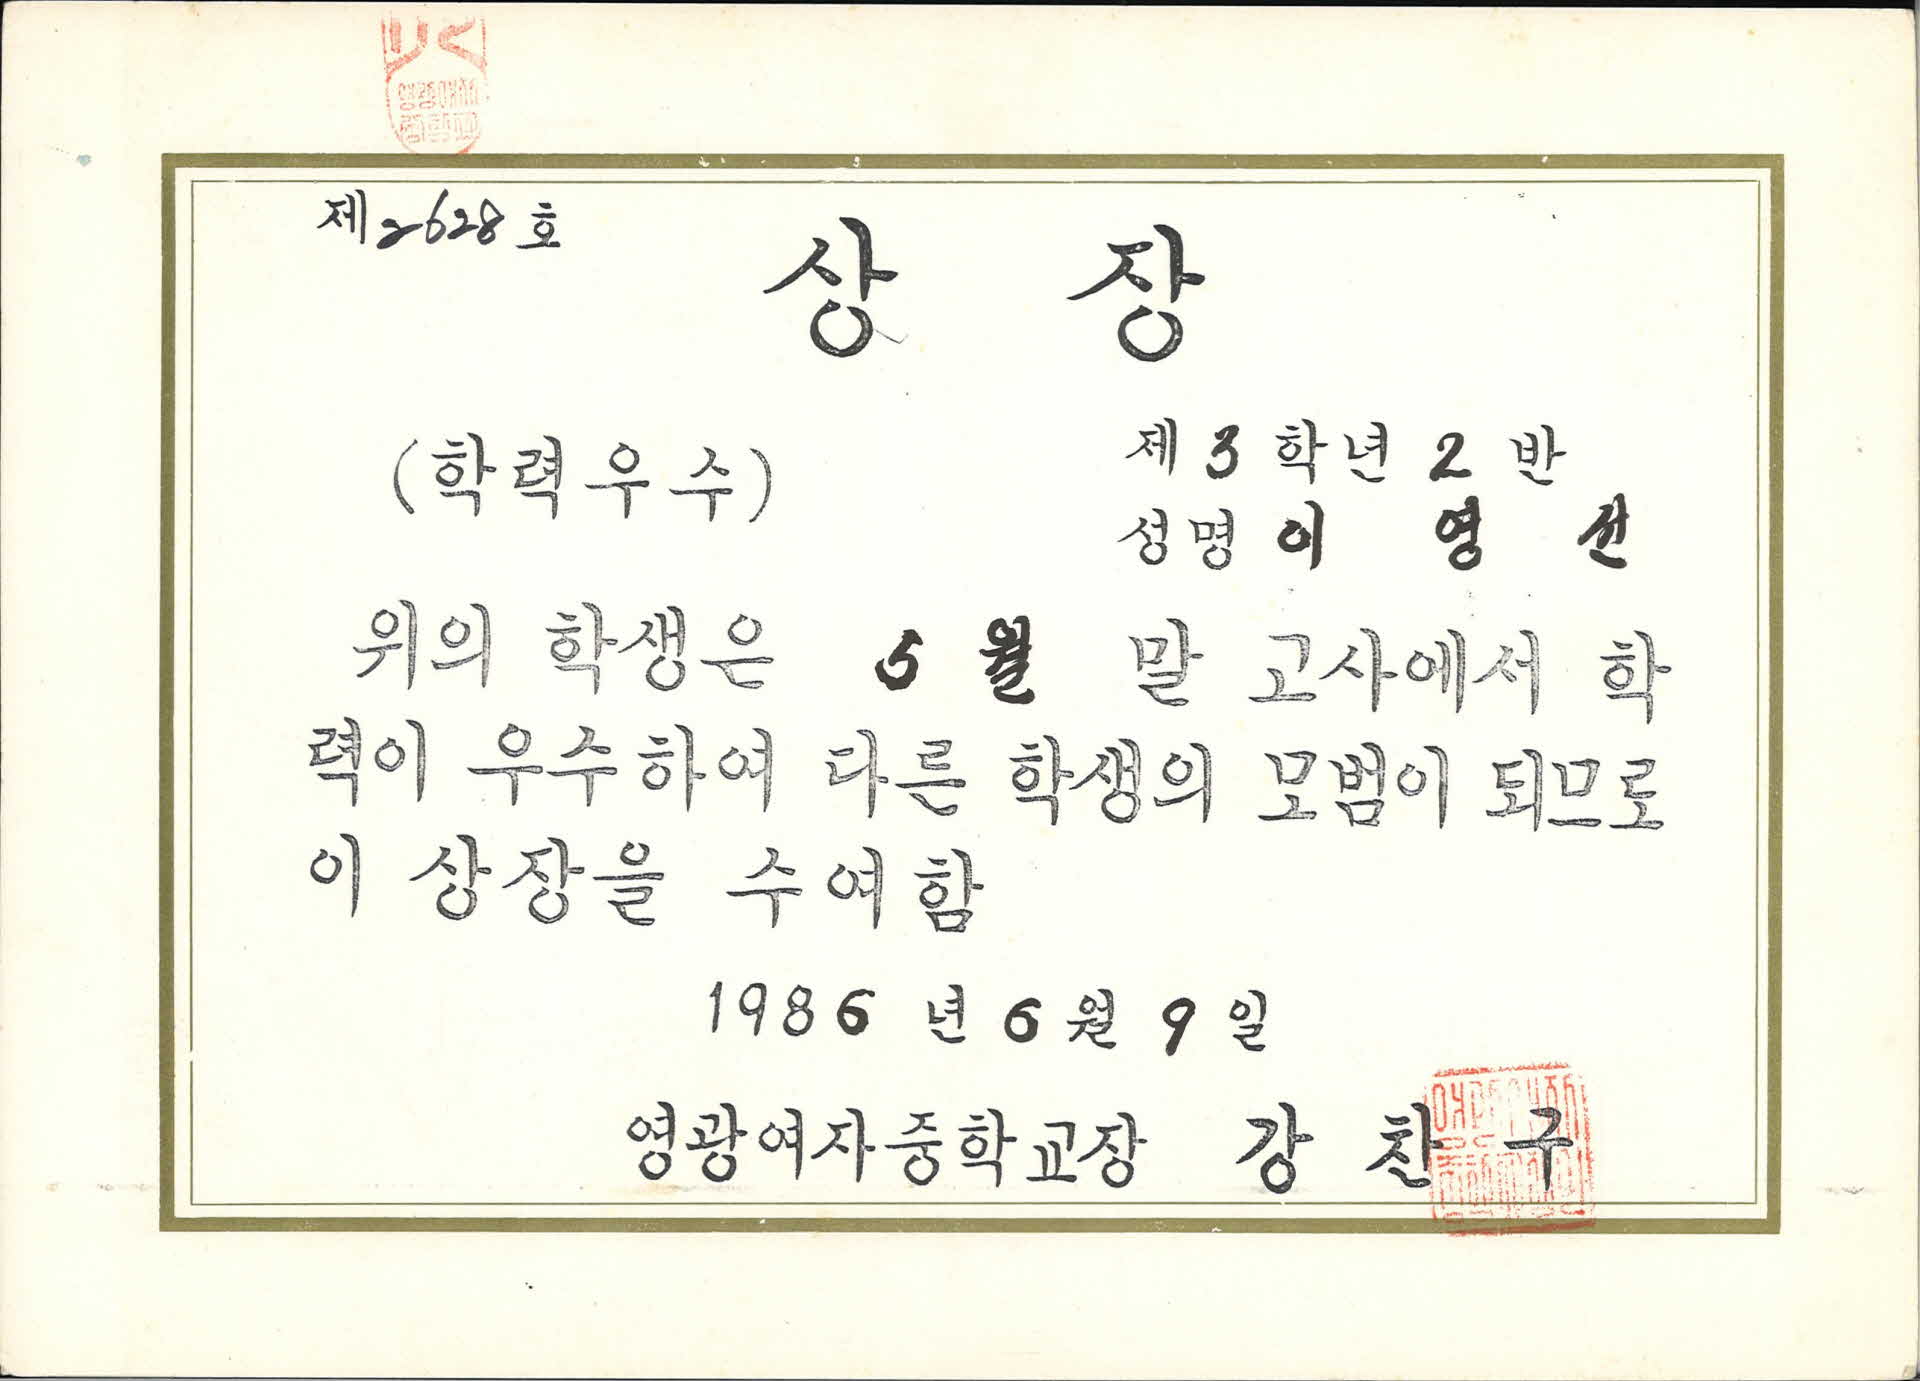 제2628호
상 장
(학력우수)
제3학년 2반
성명 이 영 선
위의 학생은 5월 말 고사에서 학
력이 우수하여 다른 학생의 모범이 되므로
이 상장을 수여함
1986년 6월 9일
영광여자중학교장 강 찬 구